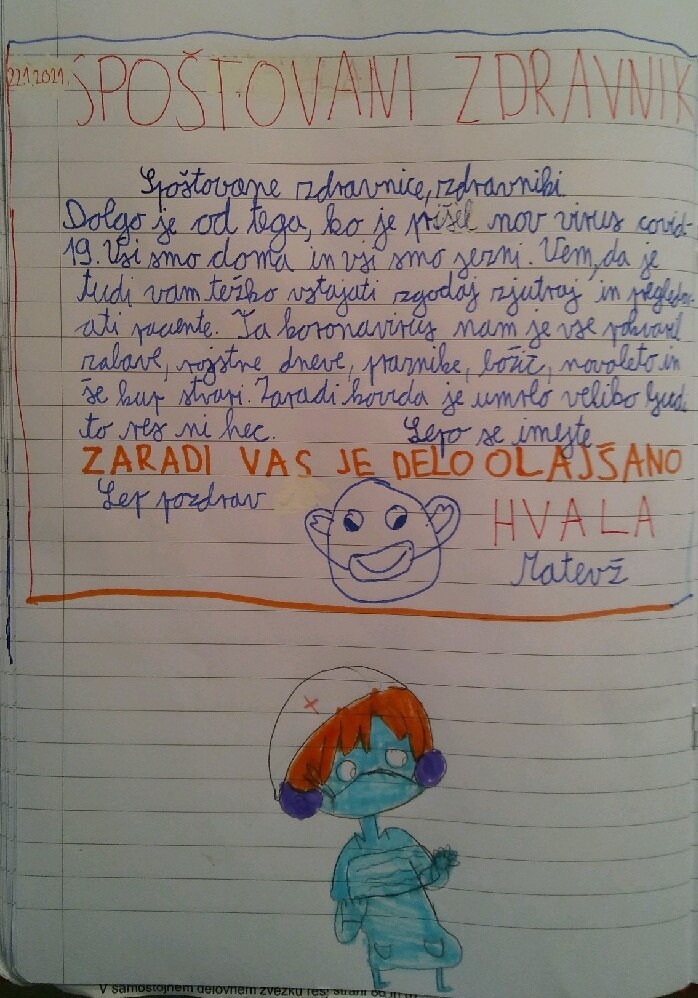 22.1.2021.
SPOŠTOVANI ZDRAVNIK
Spoštovane zdravnice, zdravniki
Dolgo je od tega, ko je prišel nov virus covid-
19. Vsi smo doma in vsi smo jezni. Vem, da je
tudi vam težko vstajati zgodaj zjutraj in pregledov
ati paciente. Ta koronavirus nam je vse pokvaril
zabave, rojstne dneve, praznike, božič, novoleto in
še kup stvari. Zaradi kovida je umrlo veliko ljud
to res ni hec. Lepo se imejte
ZARADI VAS JE DELO OLAJŠANO
Lep pozdrav
HVALA
Matevž
V samostojnem delovnem zvezku reši strani